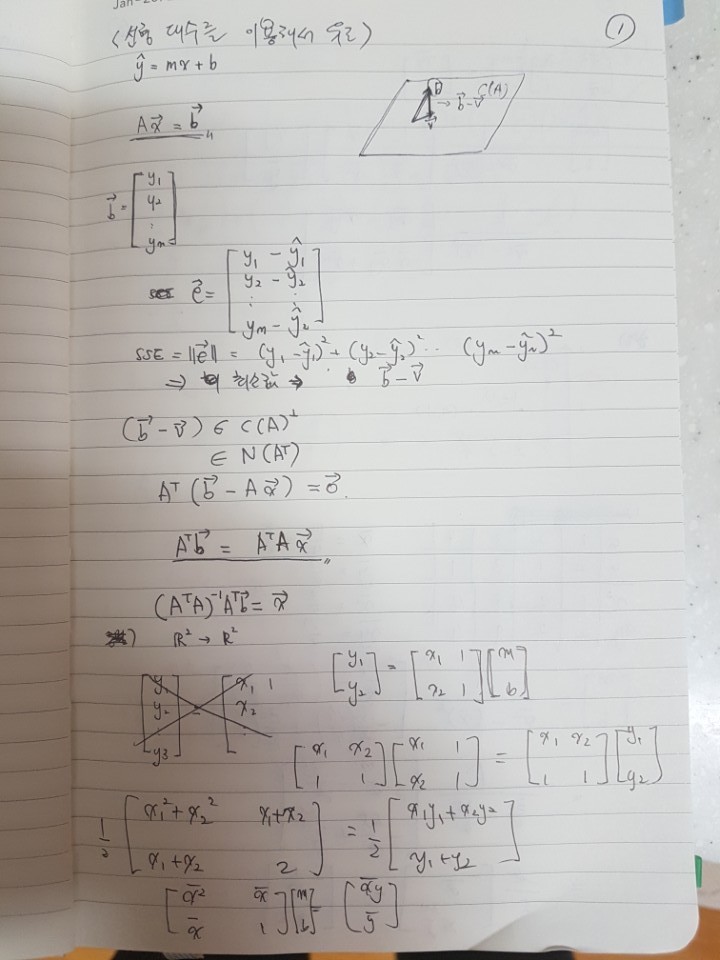 Jan-20
①
(선형 대수를 이용해서 유도)
ŷ = mx + b
Ax⃗ = b⃗ 〃
b⃗ C(A)
→ b⃗ - v⃗
v⃗
b⃗ = [y₁ y₂ ⋮ yₘ]
e⃗ = [y₁ - ŷ₁
y₂ - ŷ₂
⋮ ⋮
yₘ - ŷ₂]
SSE = ||e⃗|| = (y₁ - ŷ₁)² + (y₂ - ŷ₂)² ·· (yₘ - ŷₘ)²
⇒ 최소값 ⇒ b⃗ - v⃗
(b⃗ - v⃗) ∈ C(A)^⊥
∈ N(Aᵀ)
Aᵀ (b⃗ - A x⃗) = 0⃗.
Aᵀb⃗ = AᵀA x⃗ 〃
(AᵀA)⁻¹Aᵀb⃗ = x⃗
) ℝ² → ℝ²
[y₁ y₂ y₃] = [x₁ 1
x₂
.
[y₁; y₂] = [x₁ 1; x₂ 1][m; b]
[x₁ x₂; 1 1][x₁ 1; x₂ 1] = [x₁ x₂; 1 1][y₁; y₂]
1/2 [x₁² + x₂² x₁+x₂; x₁+x₂ 2] = 1/2 [x₁y₁ + x₂y₂; y₁ + y₂]
[x̄² x̄; x̄ 1][m; b] = [x̄y; ȳ]